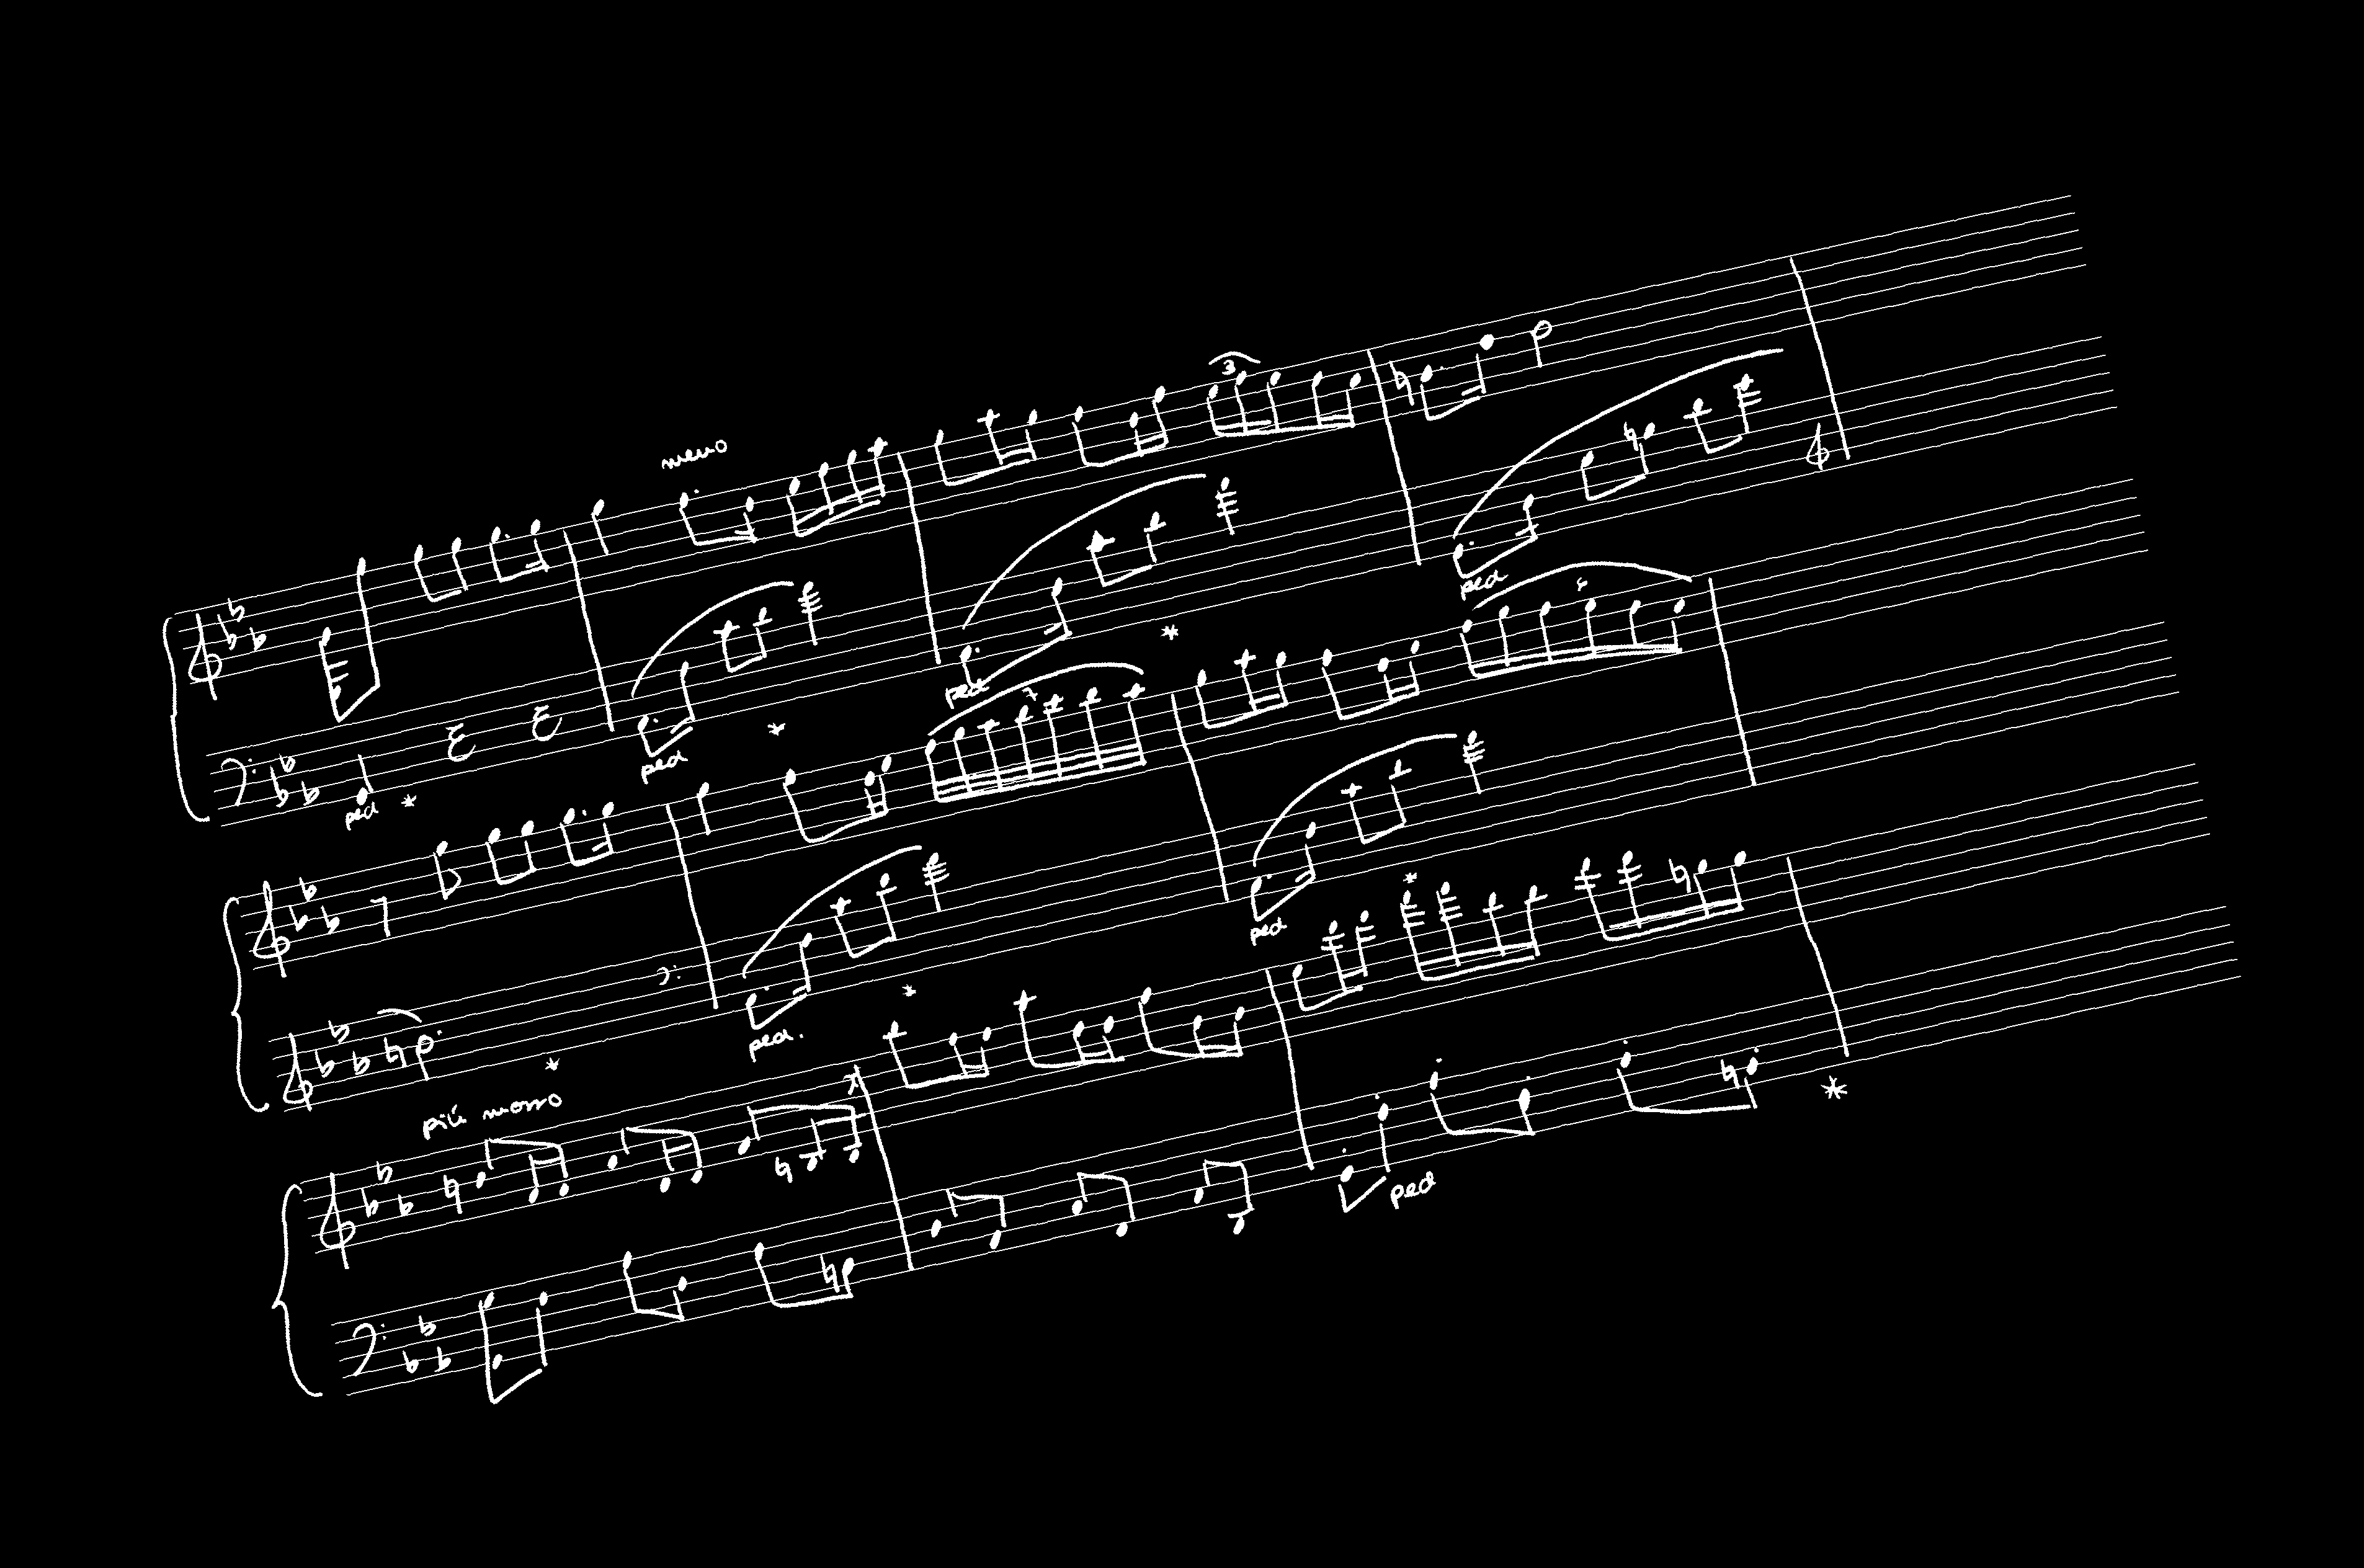 meno
3
ped
ped
ped
ped
7
6
ped.
ped
più mosso
ped